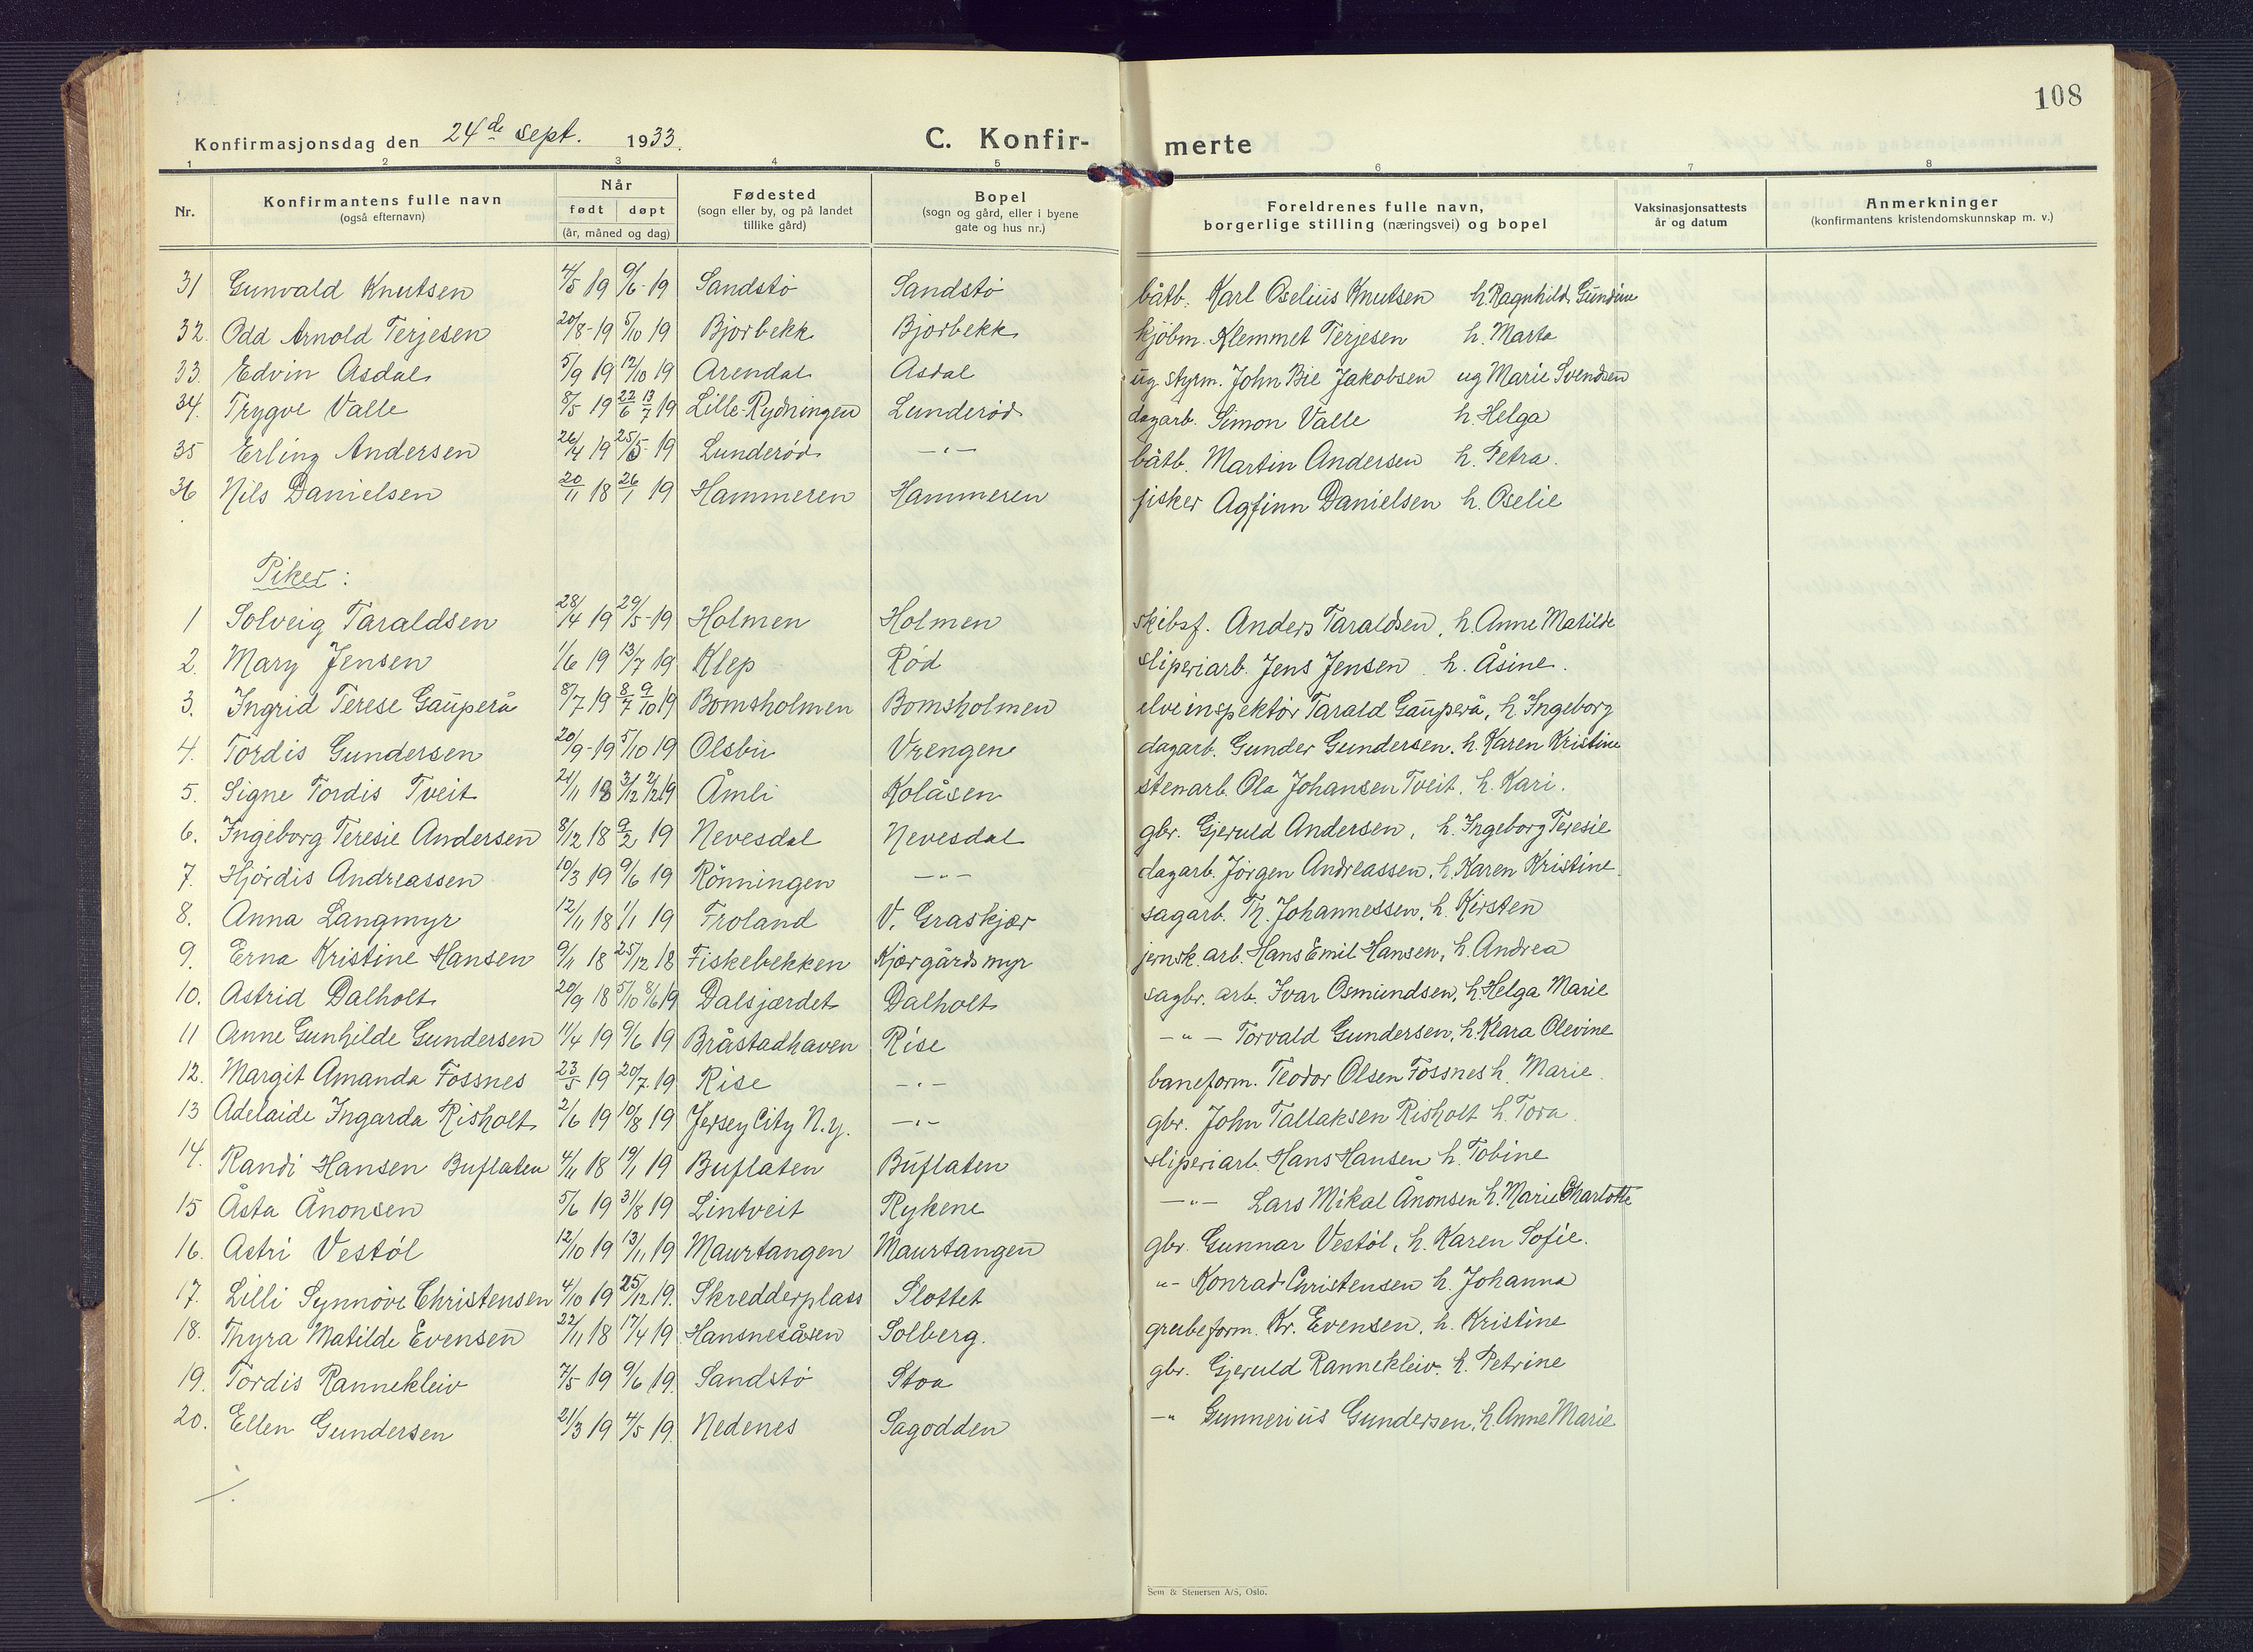 108
Konfirmasjonsdag den 24de sept. 1933.
C. Konfir-
merte
1 2 3 4 5 6 7 8
Nr.
Konfirmantens fulle navn
(også efternavn)
Når
født døpt
(år, måned og dag)
Fødested
(sogn eller by, og på landet
tillike gård)
Bopel
(sogn og gård, eller i byene
gate og hus nr.)
Foreldrenes fulle navn,
borgerlige stilling (næringsvei) og bopel
Vaksinasjonsattests
år og datum
Anmerkninger
(konfirmantens kristendomskunnskap m. v.)
31 Gunvald Knutsen 4/5 19 9/6-19 Sandstö Sandstö båtb. Karl Oselius Knutsen h. Ragnhild Gundine
32. Odd Arnold Terjesen 20/8-19 5/10 19 Bjorbekk Bjorbekk kjöbm. Klemmet Terjesen h. Marta
33. Edvin Asdal 5/9 19 12/10 19 Arendal Asdal ug. styrm. John Bie Jakobsen ug Marie Svendsen
34. Trygve Valle 8/5 19 22/6 13/7 19 Lille-Rydningen Lunderöd dagarb. Simon Valle h. Helga
35 Erling Andersen 26/4 19 25/5 19 Lunderöd —"— båtb. Martin Andersen h. Petra.
36 Nils Danielsen 20/11 18 26/1 19 Hammeren Hammeren fisker Agfinn Danielsen h. Oselie
Piker:
1 Solveig Taraldsen 28/4 19 29/5-19 Holmen Holmen skibsf. Anders Taraldsen, h. Anne Matilde
2. Mary Jensen 1/6 19 13/7 19 Klep Röd sliperiarb. Jens Jensen h. Åsine.
3. Ingrid Terese Gauperå 8/7 19 8/7 9/10 19 Bomsholmen Bomsholmen elveinspektör Tarald Gauperå, h. Ingeborg
4. Tordis Gundersen 20/9-19 5/10 19 Olsbu Vrengene dagarb. Gunder Gundersen. h. Karen Kristine
5. Signe Tordis Tveit 21/11 18 3/12 2/2 19 Åmli Kolåsen stenarb. Ola Johansen Tveit. h. Kari.
6. Ingeborg Teresie Andersen 8/12 18 9/2 19 Nevesdal Nevesdal gbr. Gjeruld Andersen, h. Ingeborg Teresie
7. Hjördis Andreassen 10/3 19 9/6 19 Rönningen —"— dagarb. Jörgen Andreassen, h. Karen Kristine.
8. Anna Langmyr 12/11 18 1/1 19 Froland V. Graskjær sagarb. Th. Johannessen, h. Kirsten
9. Erna Kristine Hansen 9/11 18 25/12 18 Fiskebekken Kjørgårdsmyr jernsk. arb. Hans Emil Hansen, h. Andrea
10. Astrid Dalholt 20/9 18 5/10 8/6 19 Dalsjærdet Dalholt sagbr. arb. Ivar Osmundsen, h. Helga Marie
11 Anne Gunhilde Gundersen 11/4 19 9/6 19 Bråstadhaven Rise —"— Torvald Gundersen, h. Klara Olevine
12. Margit Amanda Fossnes 23/5 19 20/7 19 Rise —"— baneform. Teodor Olsen Fossnes h. Marie.
13 Adelaide Ingarda Risholt 2/6 19 10/8 19 Jersey City N.y. —"— gbr. John Tallaksen Risholt h. Tora.
14. Randi Hansen Buflaten 4/11 18 19/1 19 Buflaten Buflaten sliperiarb. Hans Hansen h. Tobine
15 Åsta Ånonsen 5/6 19 31/8 19 Lintveit Rykene —"— Lars Mikal Ånonsen h. Marie Charlotte
16. Astri Vestöl 12/10 19 13/11 19 Maurtangen Maurtangen gbr. Gunnar Vestöl, h. Karen Sofie.
17. Lilli Synnöve Christensen 4/10 19 25/12 19. Skredderplass Slottet "- Konrad Christensen h. Johanna
18. Thyra Matilde Evensen 22/11 18 17/4 19 Hansnesåsen Solberg. grubeform. Kr. Evensen, h. Kristine
19. Tordis Rannekleiv 7/5 19 9/6 19. Sandstö Stoa gbr. Gjeruld Rannekleiv. h. Petrine
20. Ellen Gundersen 21/3 19 4/5 19. Nedenes Sagodden —" Gunnerius Gundersen, h. Anne Marie
Sem & Stenersen A/S, Oslo.